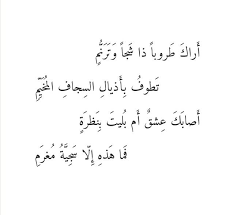 أَراكَ طَروباً ذا شَجاً وَتَرَنُّمٍ
تَطوفُ بِأَذيالِ السِجافِ المُخَيِّمِ
أَصابَكَ عِشقٌ أَم بُليتَ بِنَظرَةٍ
فَما هَذِهِ إِلّا سَجِيَّةُ مُغرَمِ